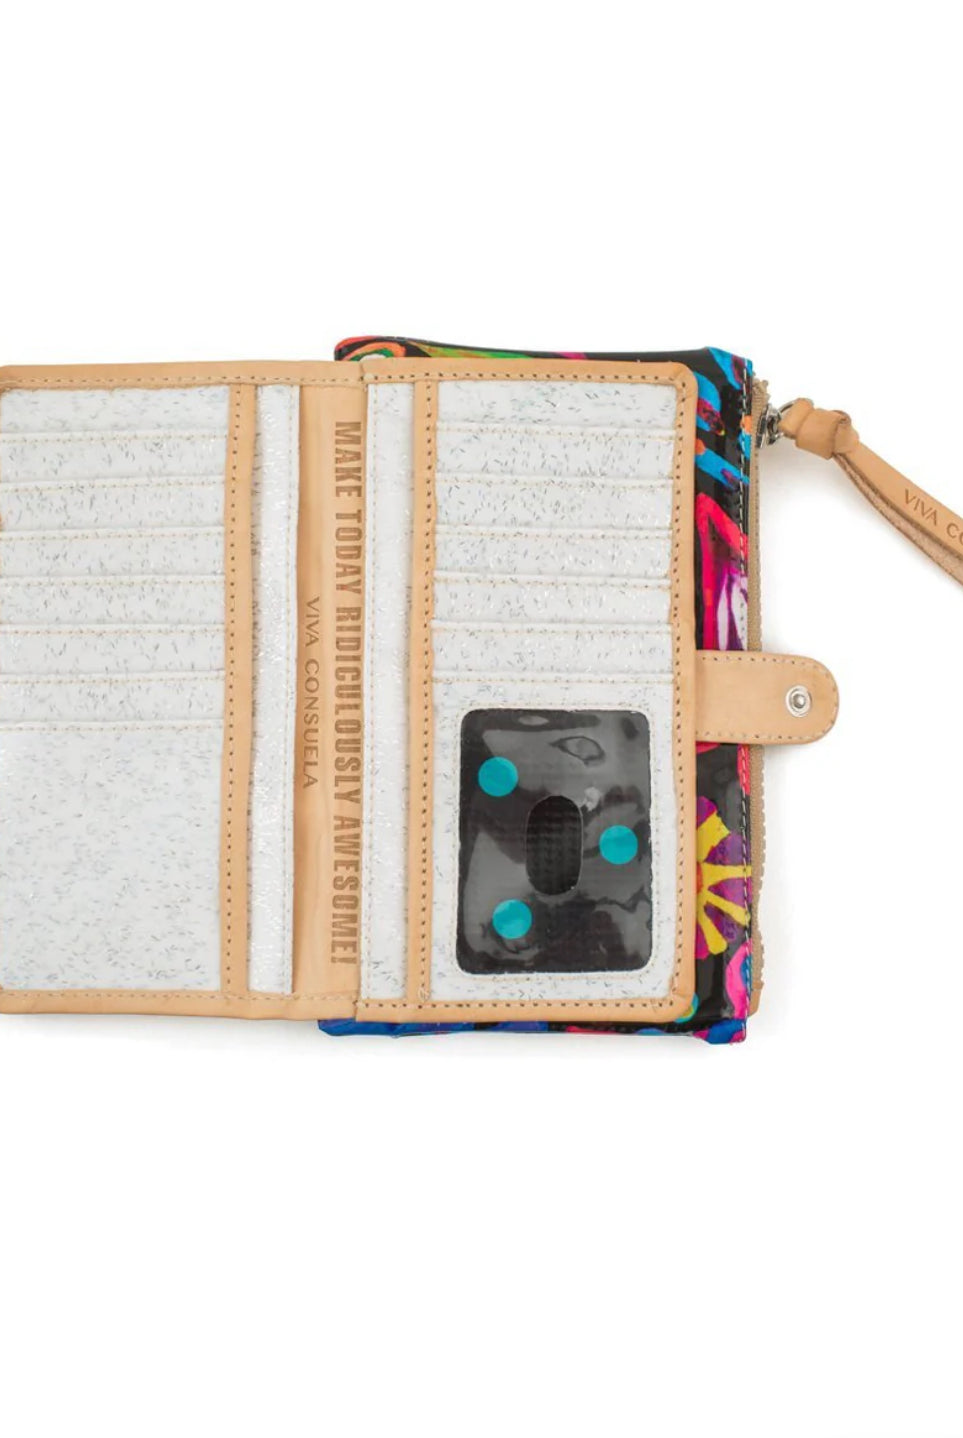 MAKE TODAY RIDICULOUSLY AWESOME!
VIVA CONSUELA
VIVA